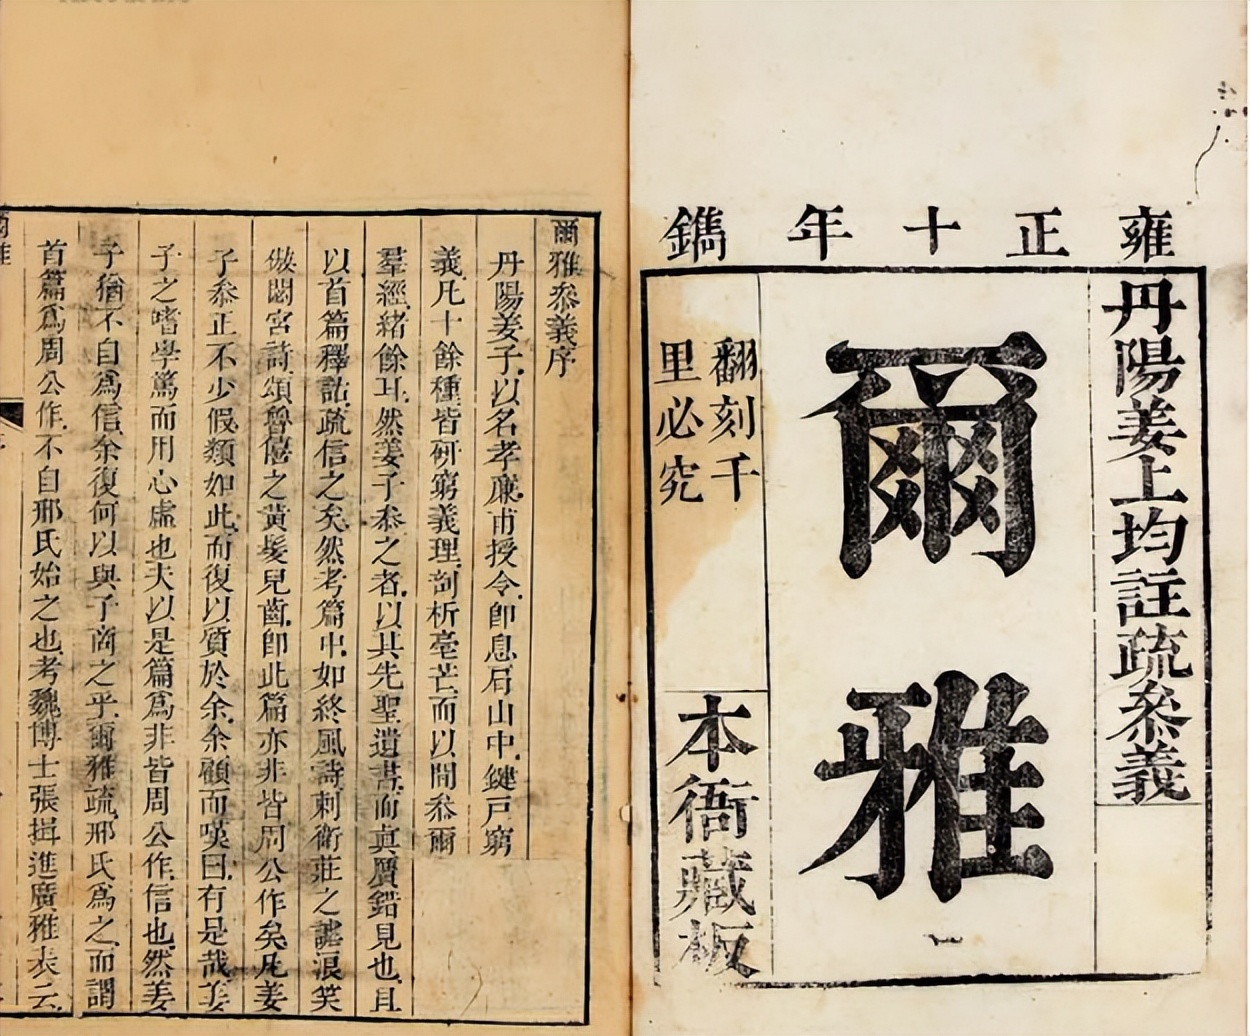 雍正十年鐫
丹陽姜上均註疏叅義
爾雅
翻刻千
里必究
本衙藏板
爾雅叅義序
丹陽姜子以名孝廉甫授令卽息肩山中鍵戸窮
義凡十餘種皆研窮義理剖析毫芒而以間叅爾
羣經緒餘耳然姜子叅之者以其先聖遺書而真贋錯見也且
以首篇釋詁疏信之矣然考篇中如終風詩刺衛莊之謔浪笑
傲閟宮詩頌魯僖之黃髮兒齒卽此篇亦非皆周公作矣凡姜
子叅正不少假類如此而復以質於余余顧而嘆曰有是哉姜
子之嗜學篤而用心虛也夫以是篇爲非皆周公作信也然姜
子猶不自爲信余復何以與子商之乎爾雅疏邢氏爲之而謂
首篇爲周公作不自邢氏始之也考魏博士張揖進廣雅表云